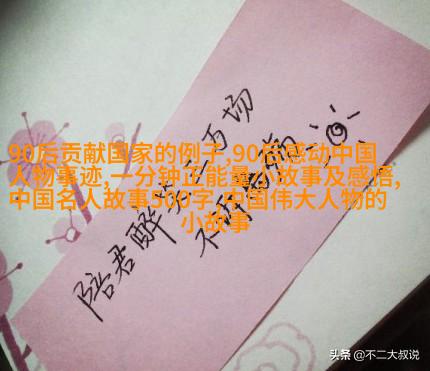 90后贡献国家的例子,90后感动中国
人物事迹,一分钟正能量小故事及感悟,
中国名人故事500字,中国伟大人物的
小故事
陪君醉笑三万场
不诉离殇
头条 @不二大叔说